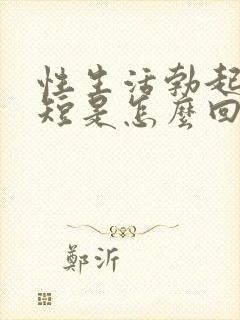 性生活勃起
短是怎麼回
鄭沂